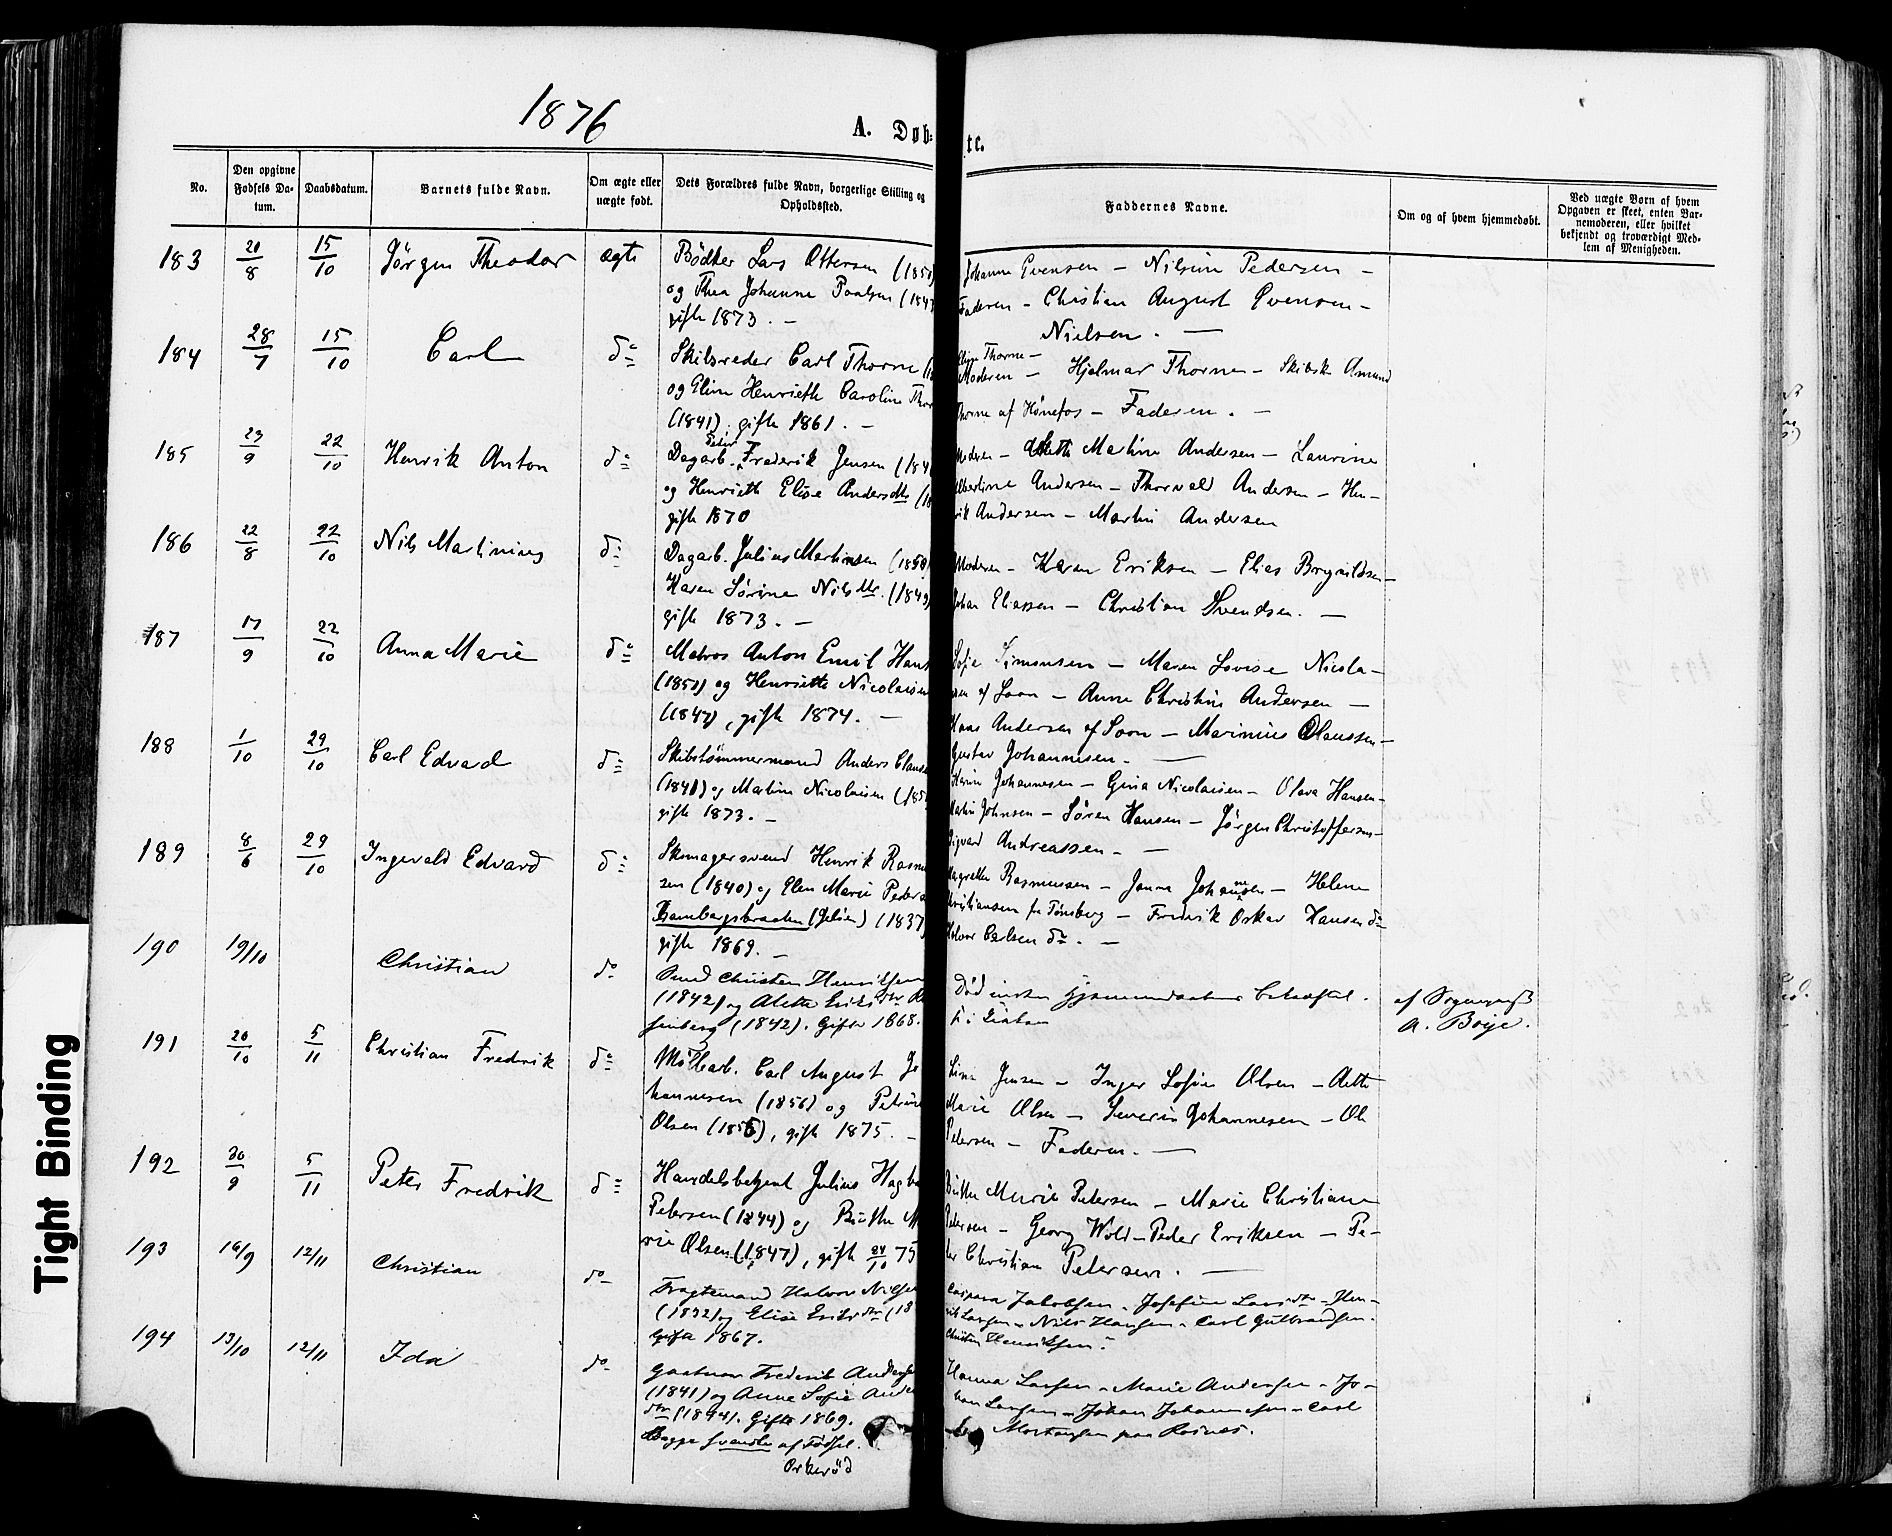 1876
A. Døb-
te.
No.
Den opgivne Fødsels Da-tum.
Daabsdatum.
Barnets fulde Navn.
Om ægte eller uægte født.
Dets Forældres fulde Navn, borgerlige Stilling og Opholdssted.
Faddernes Navne.
Om og af hvem hjemmedøbt.
Ved uægte Børn af hvem Opgaven er skeet, enten Bar-nemoderen, eller hvilket bekjendt og troværdigt Med-lem af Menigheden.
183 20/8 15/10 Jørgen Theodor ægte Bødker Lars Ottersen (1850
og Thea Johanne Paulsen (1847
gifte 1873. —
Johanne Evensen — Nilsine Pedersen —
Faderen — Christian August Evensen —
Nielsen. —
184 28/7 15/10 Carl do Skibsreder Carl Thorne
og Eline Henriette Caroline Thor
(1841), gifte 1861. —
Thorne —
Moderen — Hjalmar Thorne — Skibsk Amund
Thorne af Hønefos — Faderen. —
185 23/9 22/10 Henrik Anton do Dagarb. Peter Frederik Jensen (184
og Henriette Elise Andersdtr
gifte 1870
Moderen — Martine Andersen — Laurine
Albertine Andersen — Thorvald Andersen — Hen-
rik Andersen — Martin Andersen
186 22/8 22/10 Nils Martinius do Dagarb. Julius Martinsen (1850)
Karen Sørine Nilsdtr. (1849)
gifte 1873. —
Moderen — Karen Eriksen — Elias Brynildsen —
Johan Eliassen — Christian Svendsen. —
187 17/9 22/10 Anna Marie do Matros Anton Emil Hans
(1850) og Henriette Nicolaisen
(1847), gifte 1874. —
Sofie Simonsen — Maren Lovise Nicola-
sen af Soon — Anne Christine Andersen —
Hans Andersen af Soon — Marinius Olaussen —
Gustav Johannesen. —
188 1/10 29/10 Carl Edvard do Skibstømmermand Anders Claus
(1841) og Martine Nicolaisen (185
gifte 1873. —
Karine Johannesen — Gina Nicolaisen — Olava Hansen —
Martin Johnsen — Søren Hansen — Jørgen Christoffersen —
Sigvard Andreassen. —
189 8/6 29/10 Ingevald Edvard do Skomagersvend Henrik Rasmu
sen (1840) og Elen Marie Peders
Rambergbraaten (Jeløen) (1837)
gifte 1869. —
Rasmussen — Janna Johannesen — Helene
Christiansen fra Tønsberg — Fredrik Oskar Hansen do
Halvor Carlsen do. —
190 19/10 Christian do Christen Henriksen
(1842) og Alette Eriksdtr
(1842). Gifte 1868.
Død inden Hjemmedaaben bekræftet.
af Sogneprest
A. Boije.
191 20/10 5/11 Christian Fredrik do Møllearb. Carl August Jo
hannesen (1856) og Petrine
Olsen (1855), gifte 1875. —
Lina Jensen — Inger Sofie Olsen — Aette
Marie Olsen — Severin Johannesen — Ole
Petersen — Faderen. —
192 30/9 5/11 Peter Fredrik do Handelsbetjent Julius Hagba
Petersen (1844) og Birthe M
rie Olsen (1847), gifte 24/10 75
Birthe Marie Petersen — Marie Christiane
Petersen — Georg Wold — Peder Eriksen — Pe-
ter Christian Petersen. —
193 16/9 12/11 Christian do Fragtemand Halvor Nilsen
(1832) og Elise Eriksdtr (18
Gifte 1867.
Caspara Jakobsen — Josefine Larsdtr — Hen-
rik Larsen — Nils Hansen — Carl Gulbrandsen.
Christen Henriksen.
194 13/10 12/11 Ida do Gaardmand Frederik Anderse
(1841) og Anne Sofie Ander
dtr (1844). Gifte 1869.
Begge svenske af Fødsel.
Orkerød
Hanna Larsen — Marie Andersen — Jo-
han Larsen — Johan Johannesen — Carl
Mortensen paa Rosnes.
Tight Binding